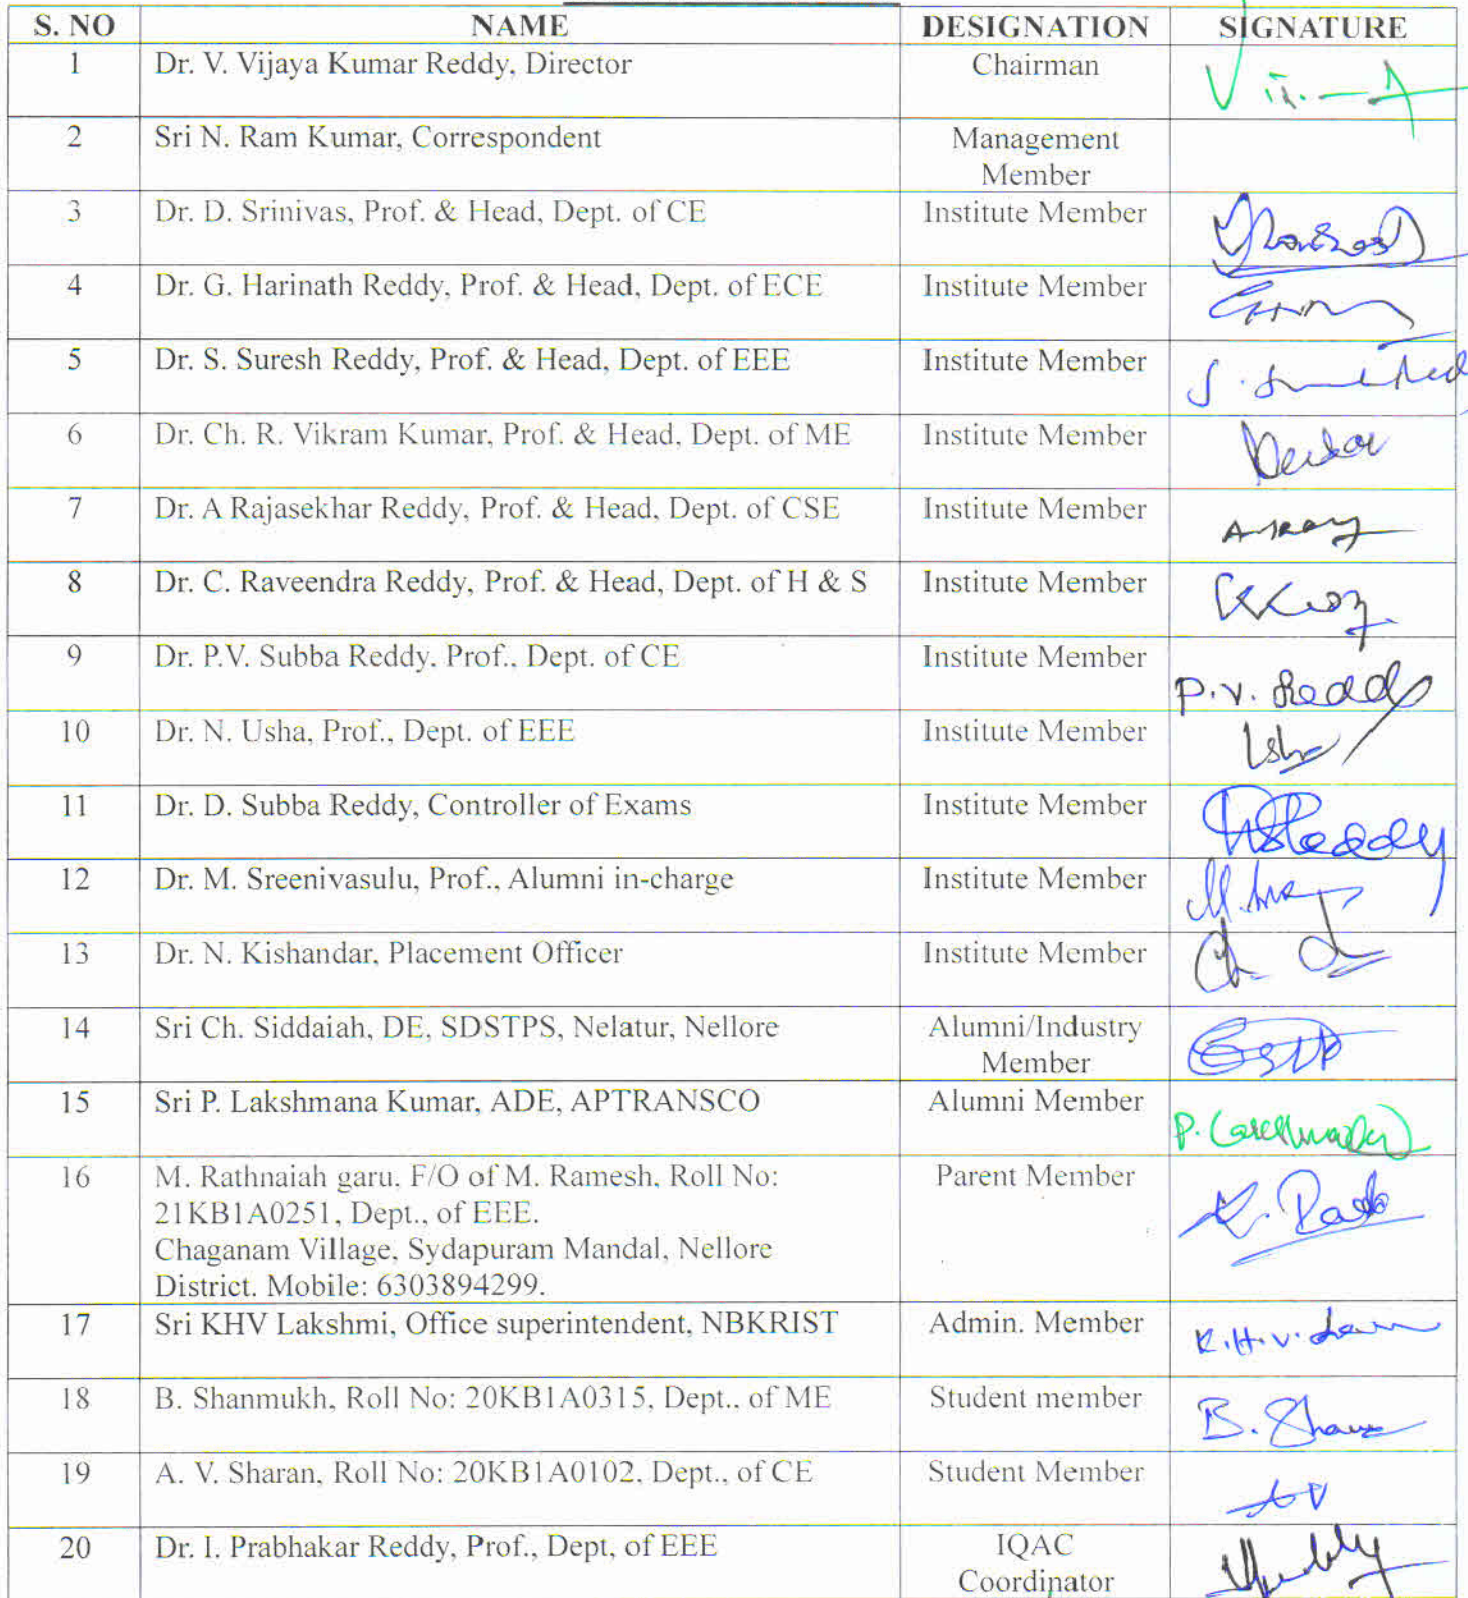 S. NO NAME DESIGNATION SIGNATURE
1 Dr. V. Vijaya Kumar Reddy, Director Chairman
2 Sri N. Ram Kumar, Correspondent Management
Member
3 Dr. D. Srinivas, Prof. & Head, Dept. of CE Institute Member
4 Dr. G. Harinath Reddy, Prof. & Head, Dept. of ECE Institute Member
5 Dr. S. Suresh Reddy, Prof. & Head, Dept. of EEE Institute Member
6 Dr. Ch. R. Vikram Kumar, Prof. & Head, Dept. of ME Institute Member
7 Dr. A Rajasekhar Reddy, Prof. & Head, Dept. of CSE Institute Member
8 Dr. C. Raveendra Reddy, Prof. & Head, Dept. of H & S Institute Member
9 Dr. P.V. Subba Reddy, Prof., Dept. of CE Institute Member
P.V. Reddy
10 Dr. N. Usha, Prof., Dept. of EEE Institute Member
11 Dr. D. Subba Reddy, Controller of Exams Institute Member
12 Dr. M. Sreenivasulu, Prof., Alumni in-charge Institute Member
13 Dr. N. Kishandar, Placement Officer Institute Member
14 Sri Ch. Siddaiah, DE, SDSTPS, Nelatur, Nellore Alumni/Industry
Member
15 Sri P. Lakshmana Kumar, ADE, APTRANSCO Alumni Member
16 M. Rathnaiah garu, F/O of M. Ramesh, Roll No: Parent Member
21KB1A0251, Dept., of EEE.
Chaganam Village, Sydapuram Mandal, Nellore
District. Mobile: 6303894299.
17 Sri KHV Lakshmi, Office superintendent, NBKRIST Admin. Member
18 B. Shanmukh, Roll No: 20KB1A0315, Dept., of ME Student member
19 A. V. Sharan, Roll No: 20KB1A0102, Dept., of CE Student Member
20 Dr. I. Prabhakar Reddy, Prof., Dept, of EEE IQAC
Coordinator